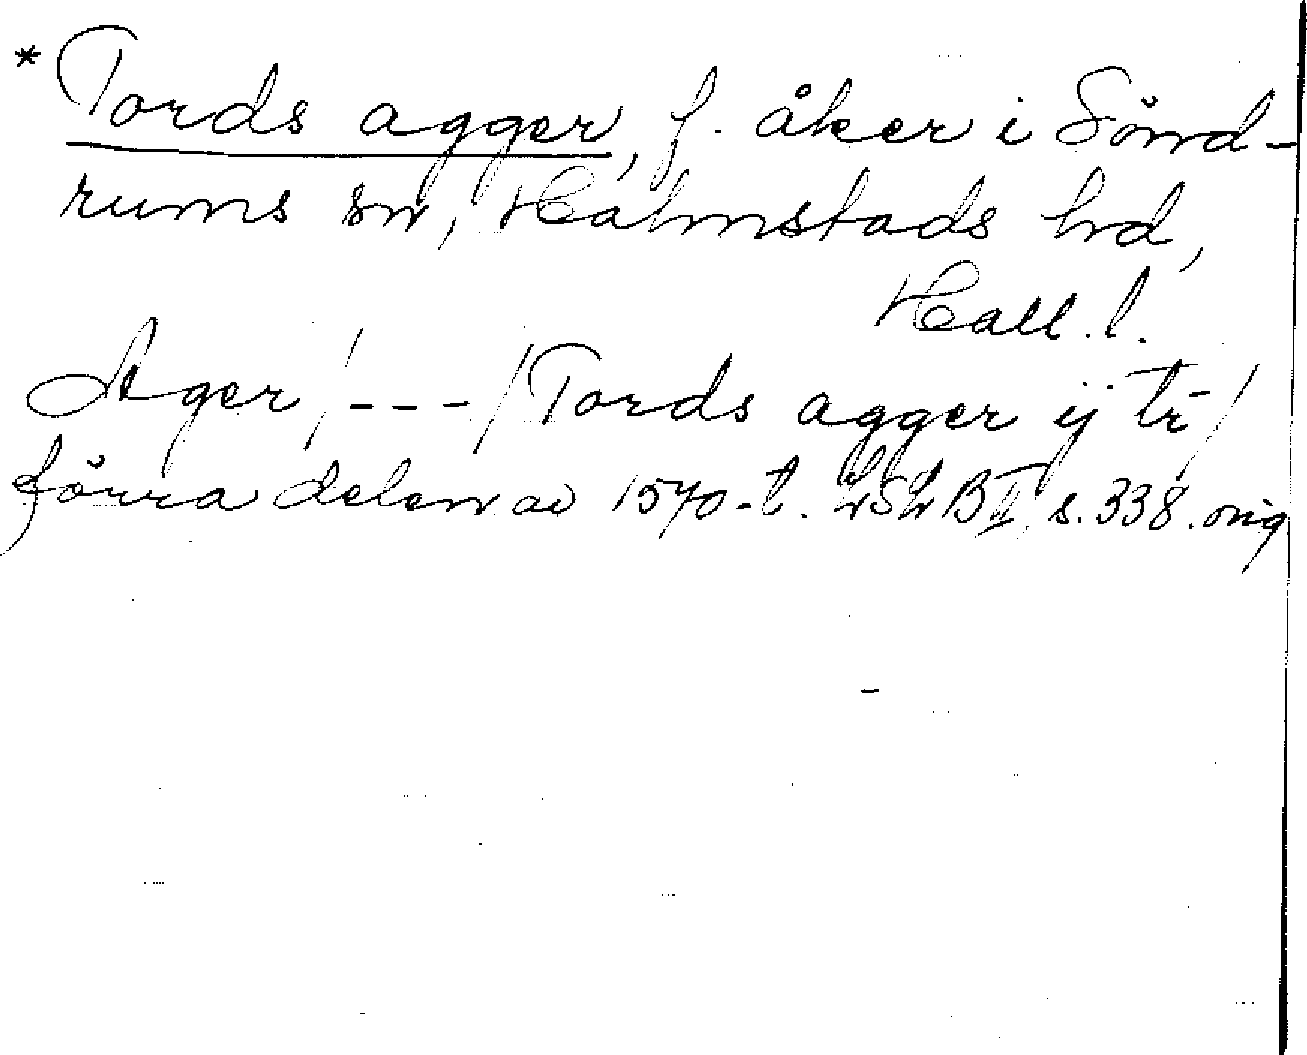 * Tords agger, f. åker i Sönd-
rums sn, Halmstads hd,
Hall. l.
Ager /---/ Tords agger ij tr /
förra delen av 1570-t. LSLB II s. 338. orig